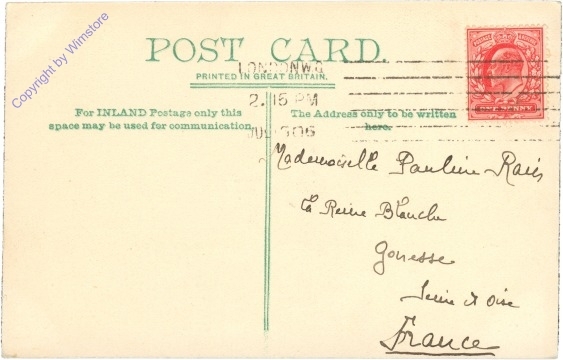 Copyright by Wimstore
POST CARD.
LONDON W.C
PRINTED IN GREAT BRITAIN.
2.15 PM
For INLAND Postage only this
space may be used for communication
The Address only to be written
here.
06
Mademoiselle Pauline
La Reine Blanche
Gonesse
Seine et Oise
France